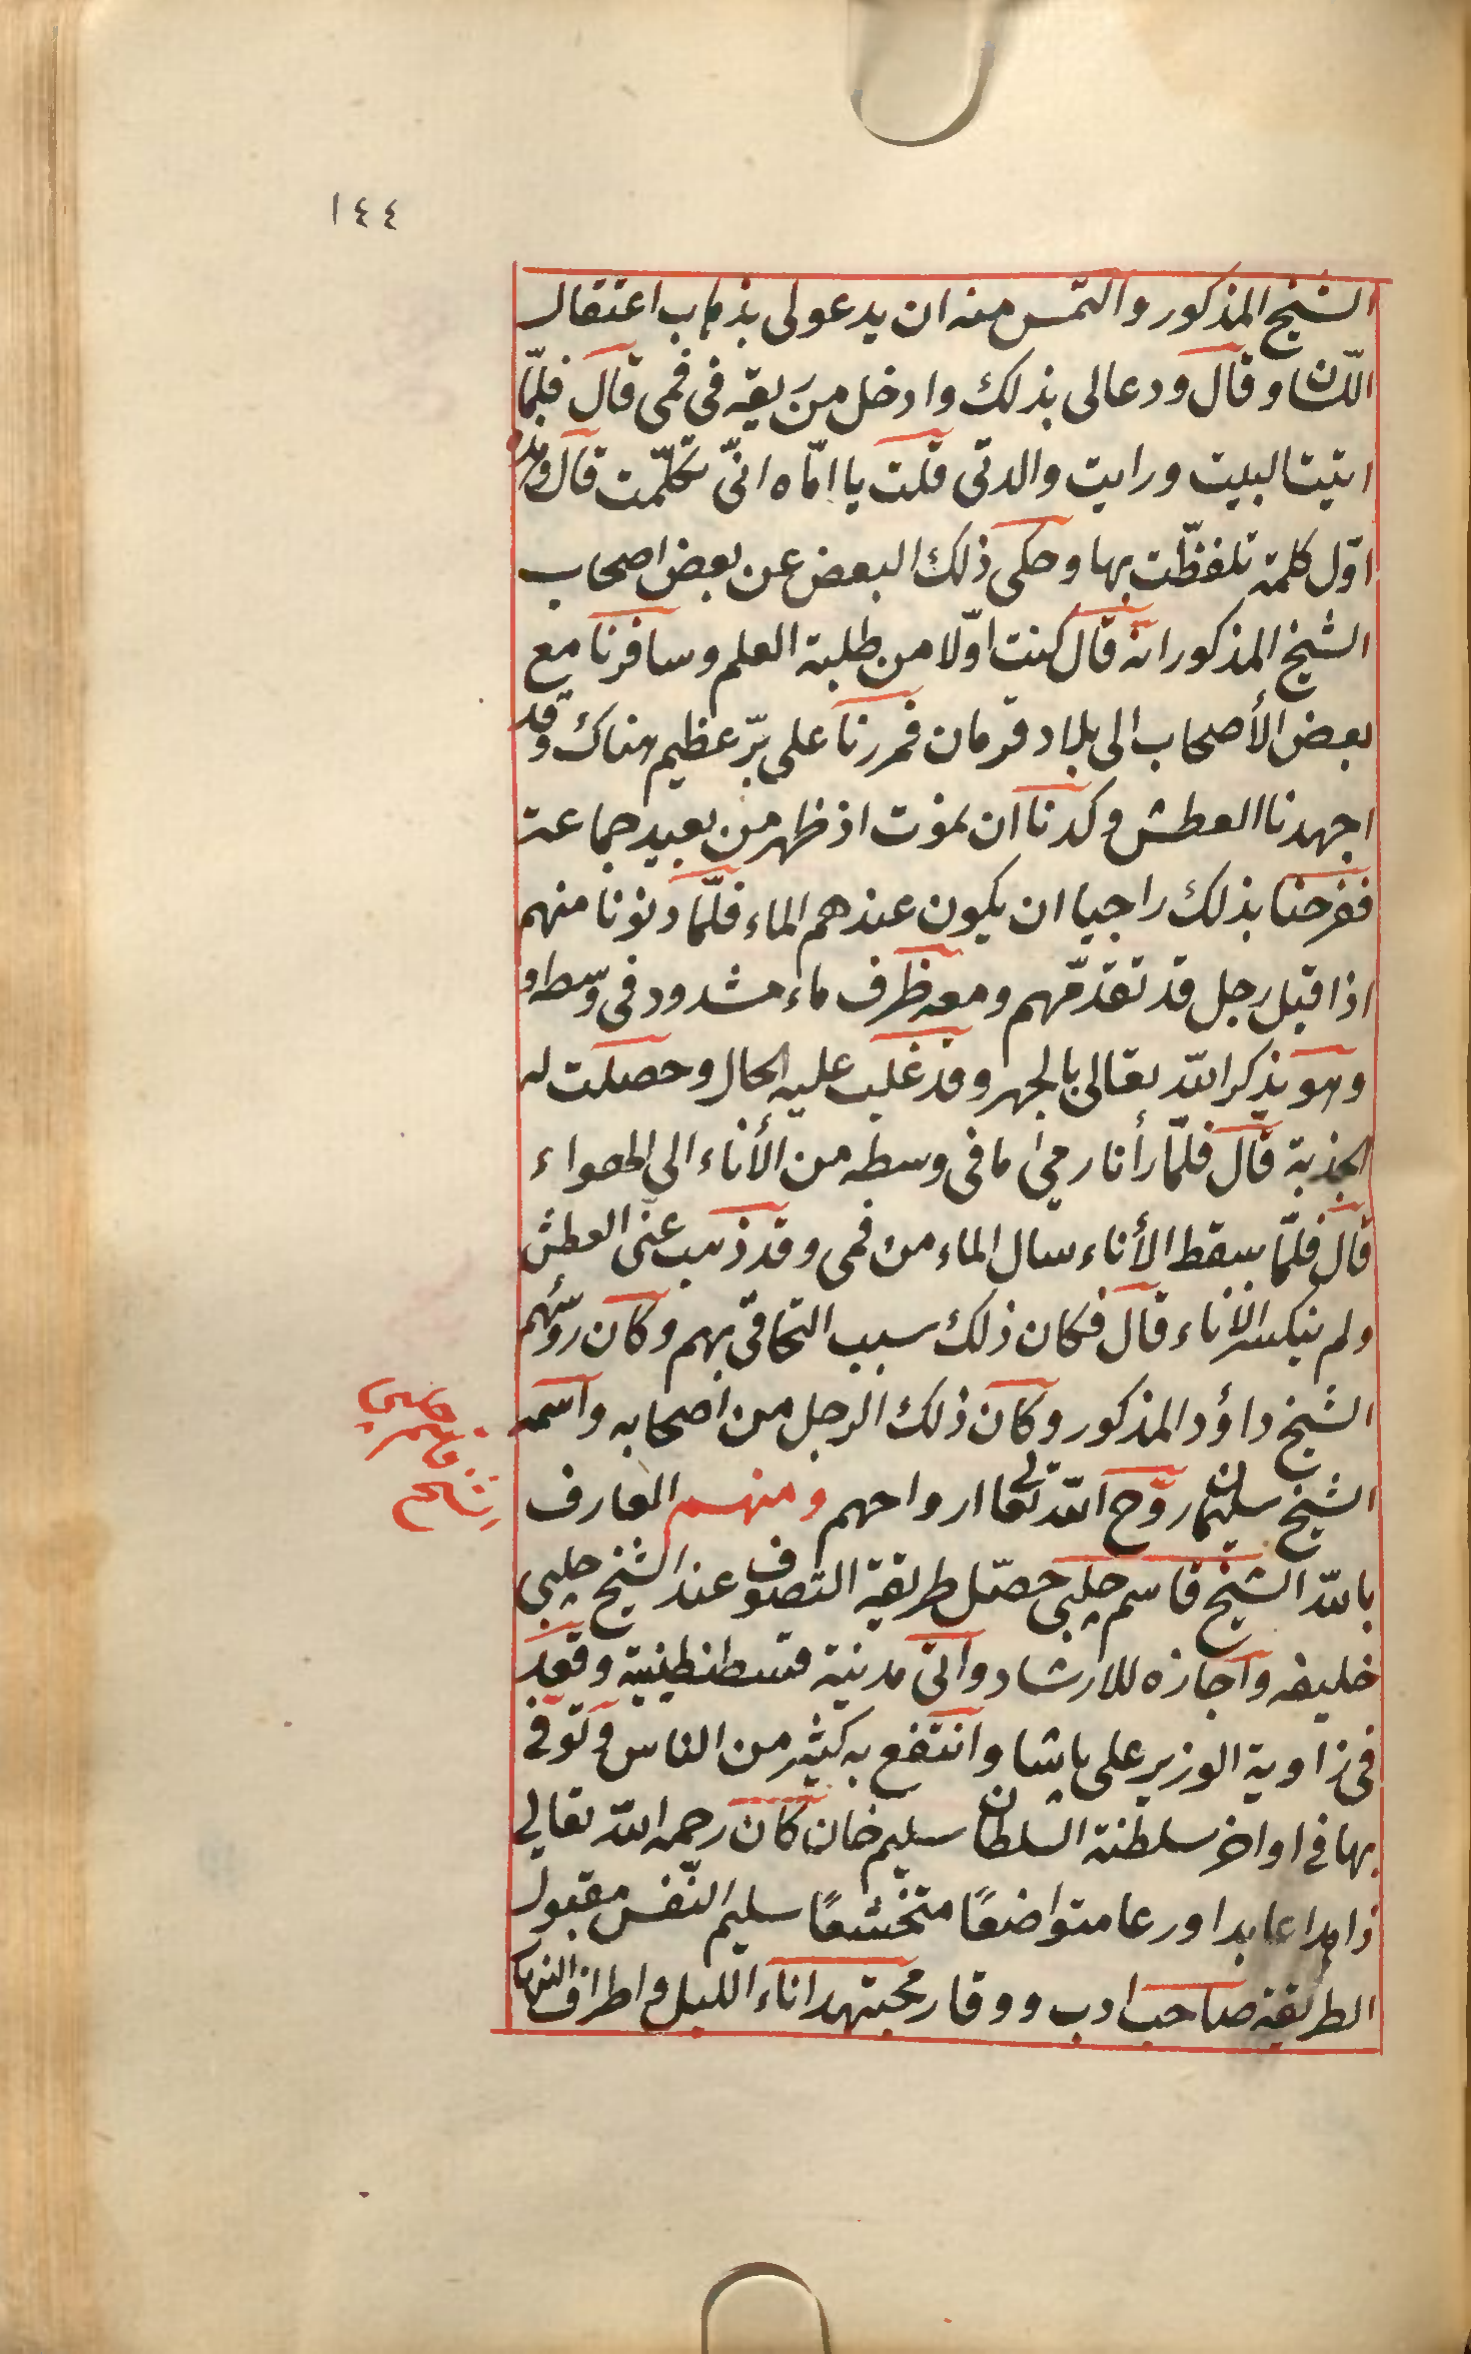 ١٤٤
الشيخ المذكور والتمس منه ان يدعو لى بذهاب اعتقال
اللسان وقال ودعا لى بذلك وادخل من ريقه فى فمى قال فلمّا
اتيت البيت ورايت والدتى قلت يا امّاه انّى تكلّمت قال وهذه
اوّل كلمة تلفظّت بها وحكى ذلك البعض عن بعض اصحاب
الشيخ المذكور انه قال كنت اوّلا من طلبة العلم وسافرنا مع
بعض الأصحاب الى بلاد قرمان فمررنا على برّ عظيم هناك وقد
اجهدنا العطش وكدنا ان نموت اذ ظهر من بعيد جماعت
ففرحنا بذلك راجيا ان يكون عندهم الماء فلمّا دنونا منهم
اذ اقبل رجل قد تقدّمهم ومعه ظرف ماء مشدود فى وسطه و
وهو يذكر الله تعالى بالجهر وقد غلب عليه الحال وحصلت له
الجذبة قال فلمّا رأنا رمى ما فى وسطه من الأناء الى الهواء
قال فلمّا سقط الأناء سال الماء من فمى وقد ذهب عنّى العطش
ولم ينكسر الاناء قال فكان ذلك سبب التحاقى بهم وكان رئيسهم
الشيخ داؤد المذكور وكان ذلك الرجل من اصحابه واسمه
الشيخ سليمان روّح الله تعالى ارواحهم ومنهم العارف
بالله الشيخ قاسم چلبى حصّل طريقة التصوف عند الشيخ چلبى
خليفه واجازه للارشاد واتى مدنية قسطنطينية وقعد
فى زاوية الوزير على پاشا وانتفع به كثير من الناس وتوفى
بها فى اواخر سلطنة السلطان سليم خان كان رحمه الله تعالى
زاهدا عابدا ورعا متواضعًا متخشعًا سليم النّفس مقبول
الطريقة صاحب ادب ووقار مجتهدا اناء الليل واطراف النهار
شيخ
قاسم
چلبى